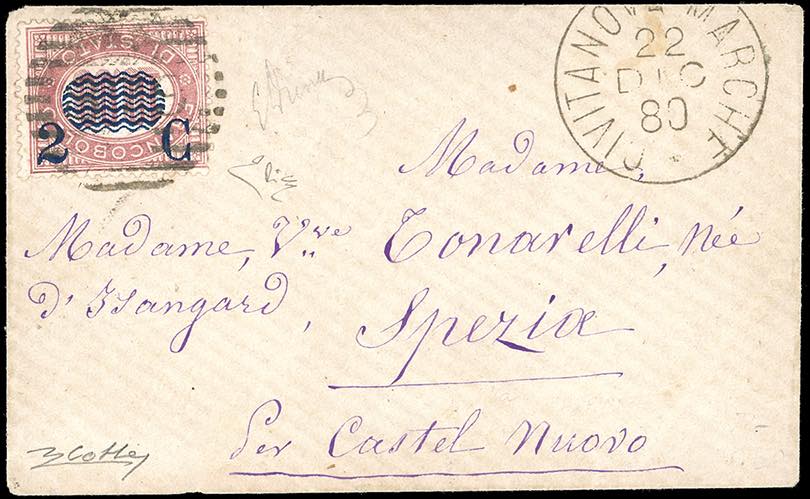 DI STATO
FRANCOBOLLO
2 C
CIVITANOVA MARCHE
22
DIC
80
Madame,
Madame, Vve Tonarelli, née
d'Isangard,
Spezia
Per Castel Nuovo